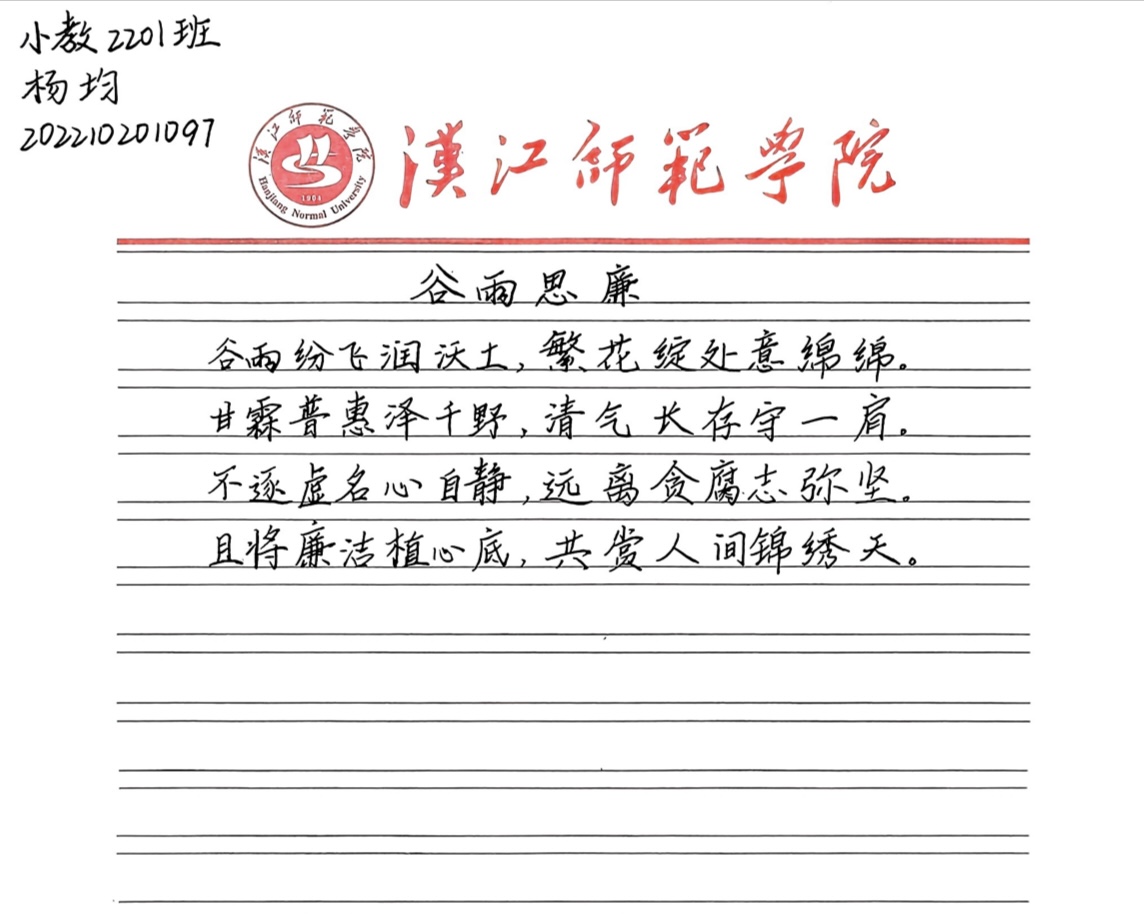 小教2201班
杨均
202210201097
漢江師範學院
漢江師範學院
Hanjiang Normal University
1904
谷雨思廉
谷雨纷飞润沃土,繁花绽处意绵绵。
甘霖普惠泽千野,清气长存守一肩。
不逐虚名心自静,远离贪腐志弥坚。
且将廉洁植心底,共赏人间锦绣天。